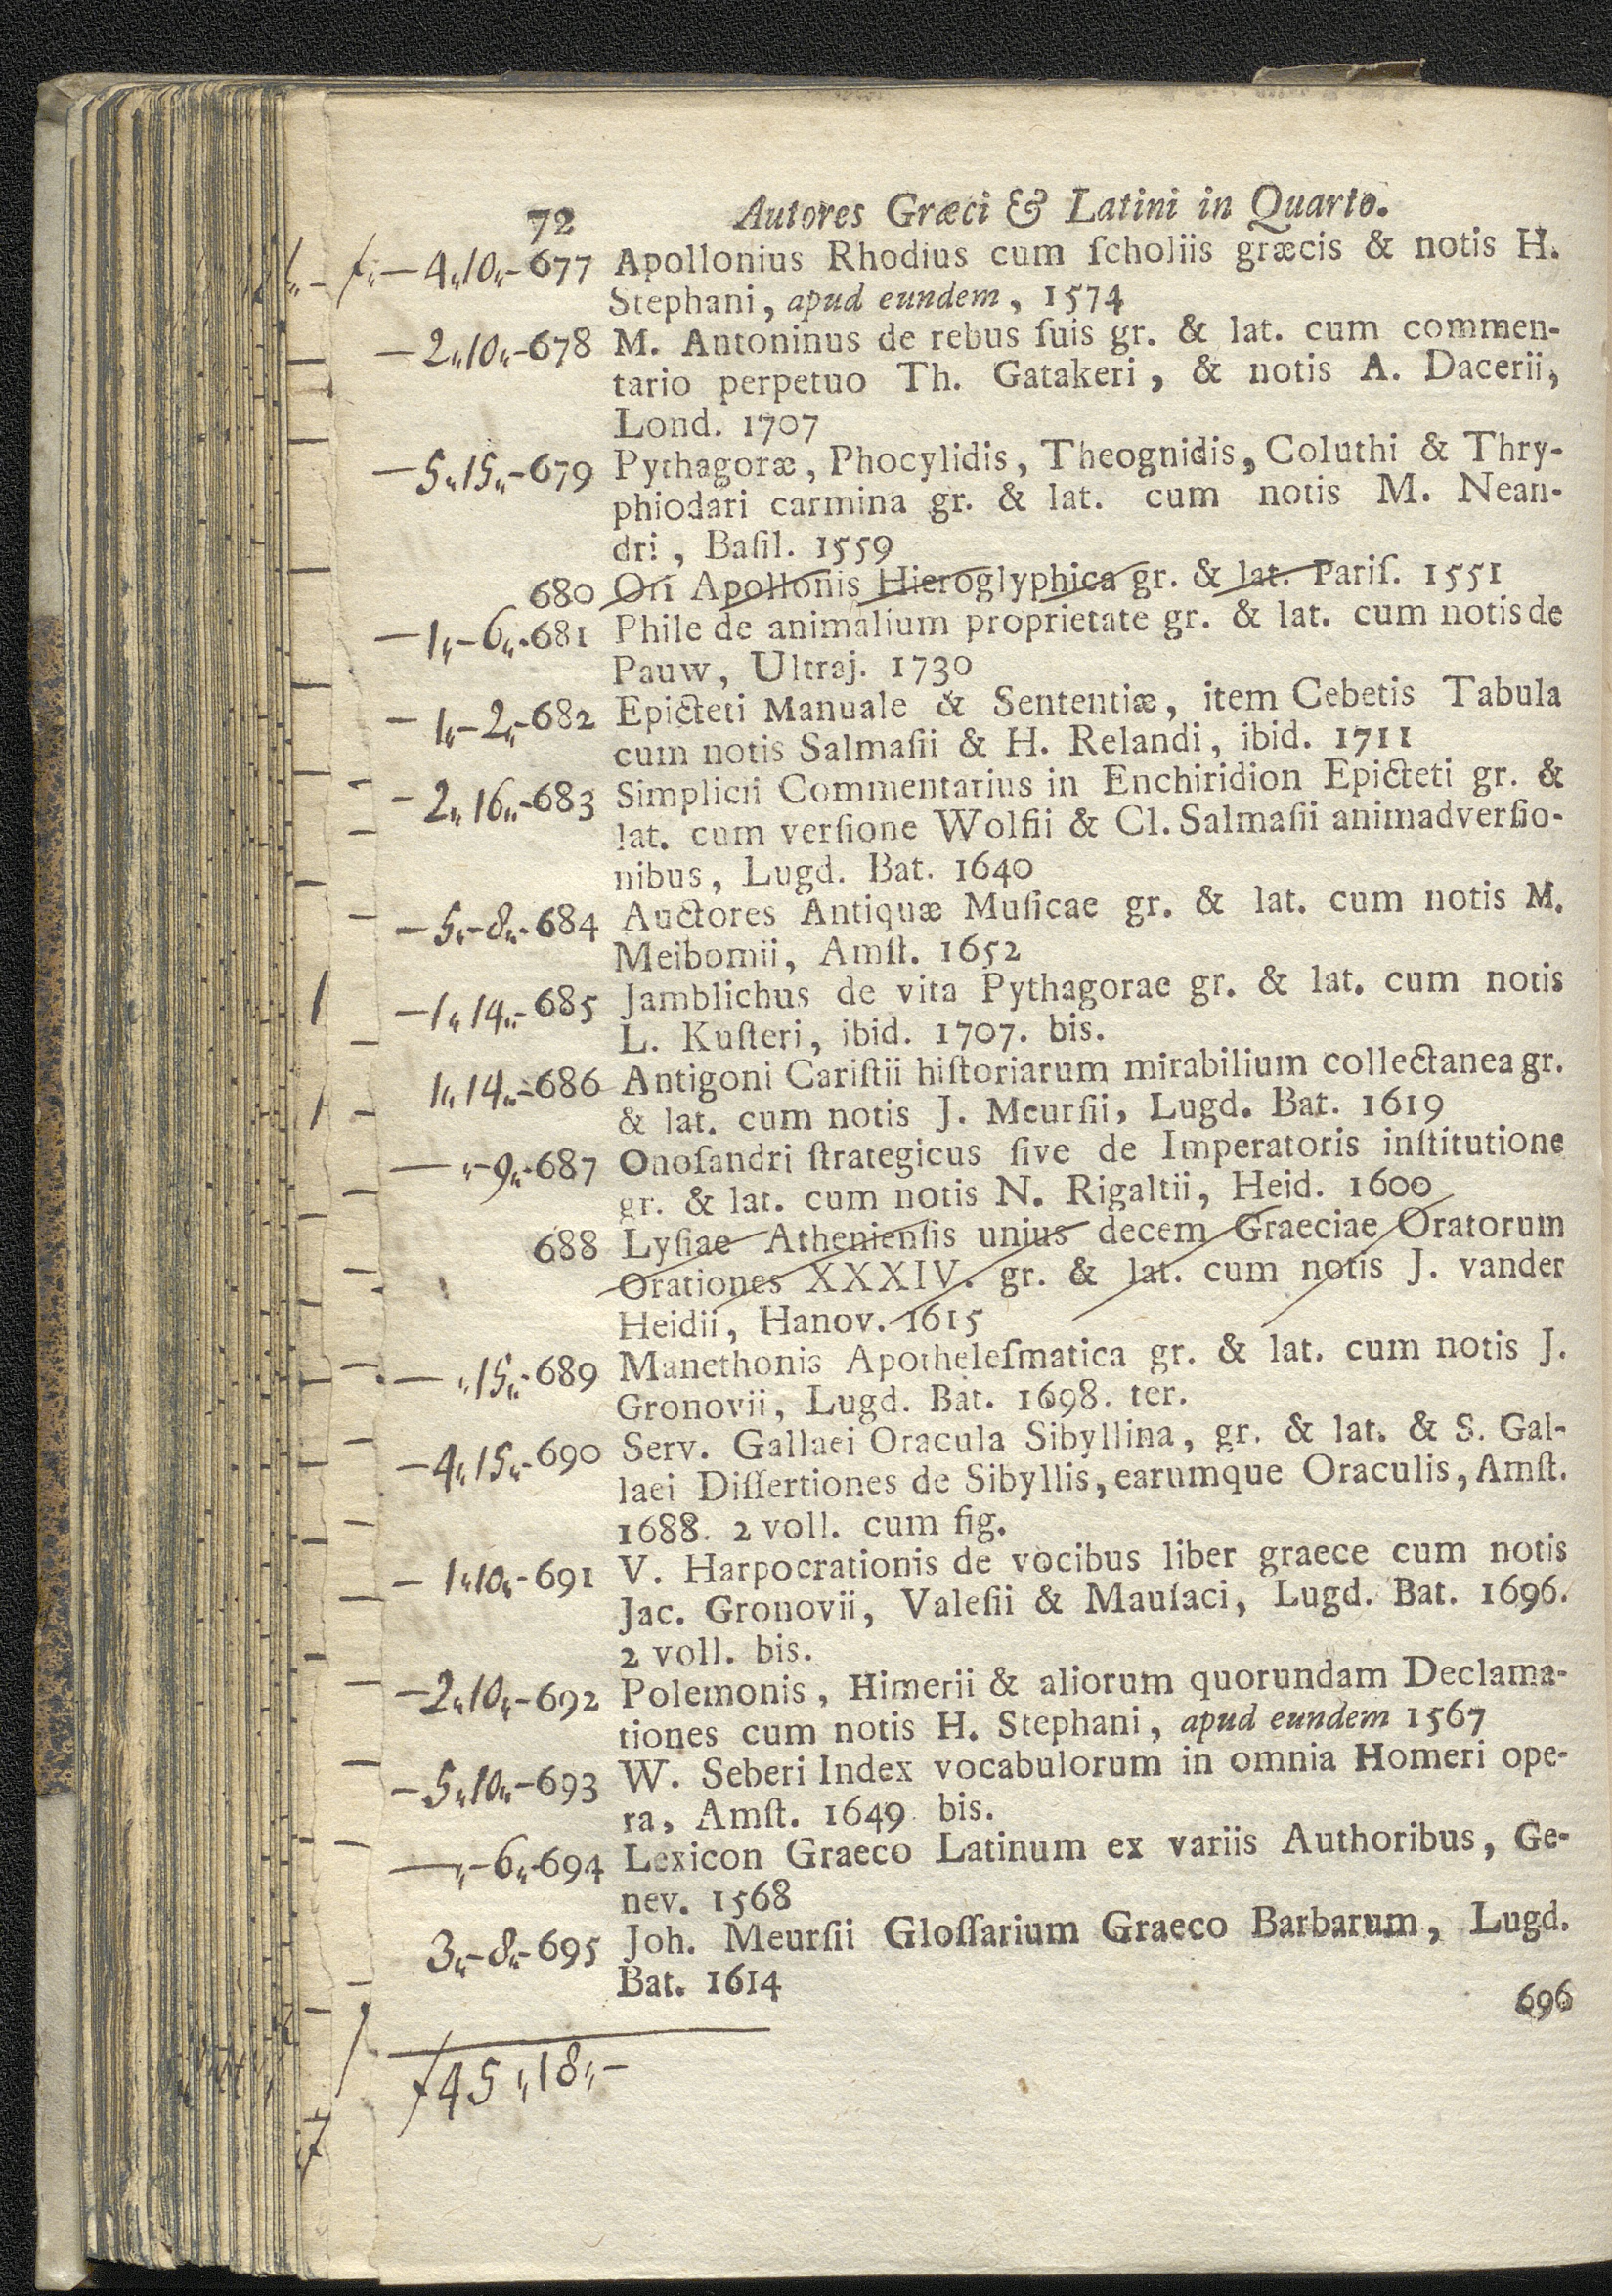 72 Autores Græci & Latini in Quarto.
ƒ„—4„10„-677 Apollonius Rhodius cum ſcholiis græcis & notis H.
Stephani, apud eundem, 1574
—2„10„-678 M. Antoninus de rebus ſuis gr. & lat. cum commen-
tario perpetuo Th. Gatakeri, & notis A. Dacerii,
Lond. 1707
—5„15„-679 Pythagoræ, Phocylidis, Theognidis, Coluthi & Thry-
phiodari carmina gr. & lat. cum notis M. Nean-
dri, Baſil. 1559
680 Ori Apollonis Hieroglyphica gr. & lat. Pariſ. 1551
—1„-6„-681 Phile de animalium proprietate gr. & lat. cum notis de
Pauw, Ultraj. 1730
—1„-2„-682 Epicteti Manuale & Sententiæ, item Cebetis Tabula
cum notis Salmaſii & H. Relandi, ibid. 1711
—2„16„-683 Simplicii Commentarius in Enchiridion Epicteti gr. &
lat. cum verſione Wolfii & Cl. Salmaſii animadverſio-
nibus, Lugd. Bat. 1640
—5„-8„-684 Auctores Antiquæ Muſicae gr. & lat. cum notis M.
Meibomii, Amſt. 1652
—1„14„-685 Jamblichus de vita Pythagorae gr. & lat. cum notis
L. Kuſteri, ibid. 1707. bis.
1„14„-686 Antigoni Cariſtii hiſtoriarum mirabilium collectanea gr.
& lat. cum notis J. Meurſii, Lugd. Bat. 1619
—„-9„-687 Onoſandri ſtrategicus ſive de Imperatoris inſtitutione
gr. & lat. cum notis N. Rigaltii, Heid. 1600
688 Lyſiae Athenienſis unius decem Graeciae Oratorum
Orationes XXXIV. gr. & lat. cum notis J. vander
Heidii, Hanov. 1615
—„15„-689 Manethonis Apotheleſmatica gr. & lat. cum notis J.
Gronovii, Lugd. Bat. 1698. ter.
—4„15„-690 Serv. Gallaei Oracula Sibyllina, gr. & lat. & S. Gal-
laei Diſſertiones de Sibyllis, earumque Oraculis, Amſt.
1688. 2 voll. cum fig.
—1„10„-691 V. Harpocrationis de vocibus liber graece cum notis
Jac. Gronovii, Valeſii & Mauſaci, Lugd. Bat. 1696.
2 voll. bis.
—2„10„-692 Polemonis, Himerii & aliorum quorundam Declama-
tiones cum notis H. Stephani, apud eundem 1567
—5„10„-693 W. Seberi Index vocabulorum in omnia Homeri ope-
ra, Amſt. 1649 bis.
—„-6„-694 Lexicon Graeco Latinum ex variis Authoribus, Ge-
nev. 1568
3„-8„-695 Joh. Meurſii Gloſſarium Graeco Barbarum, Lugd.
Bat. 1614
696
ƒ45„18„-